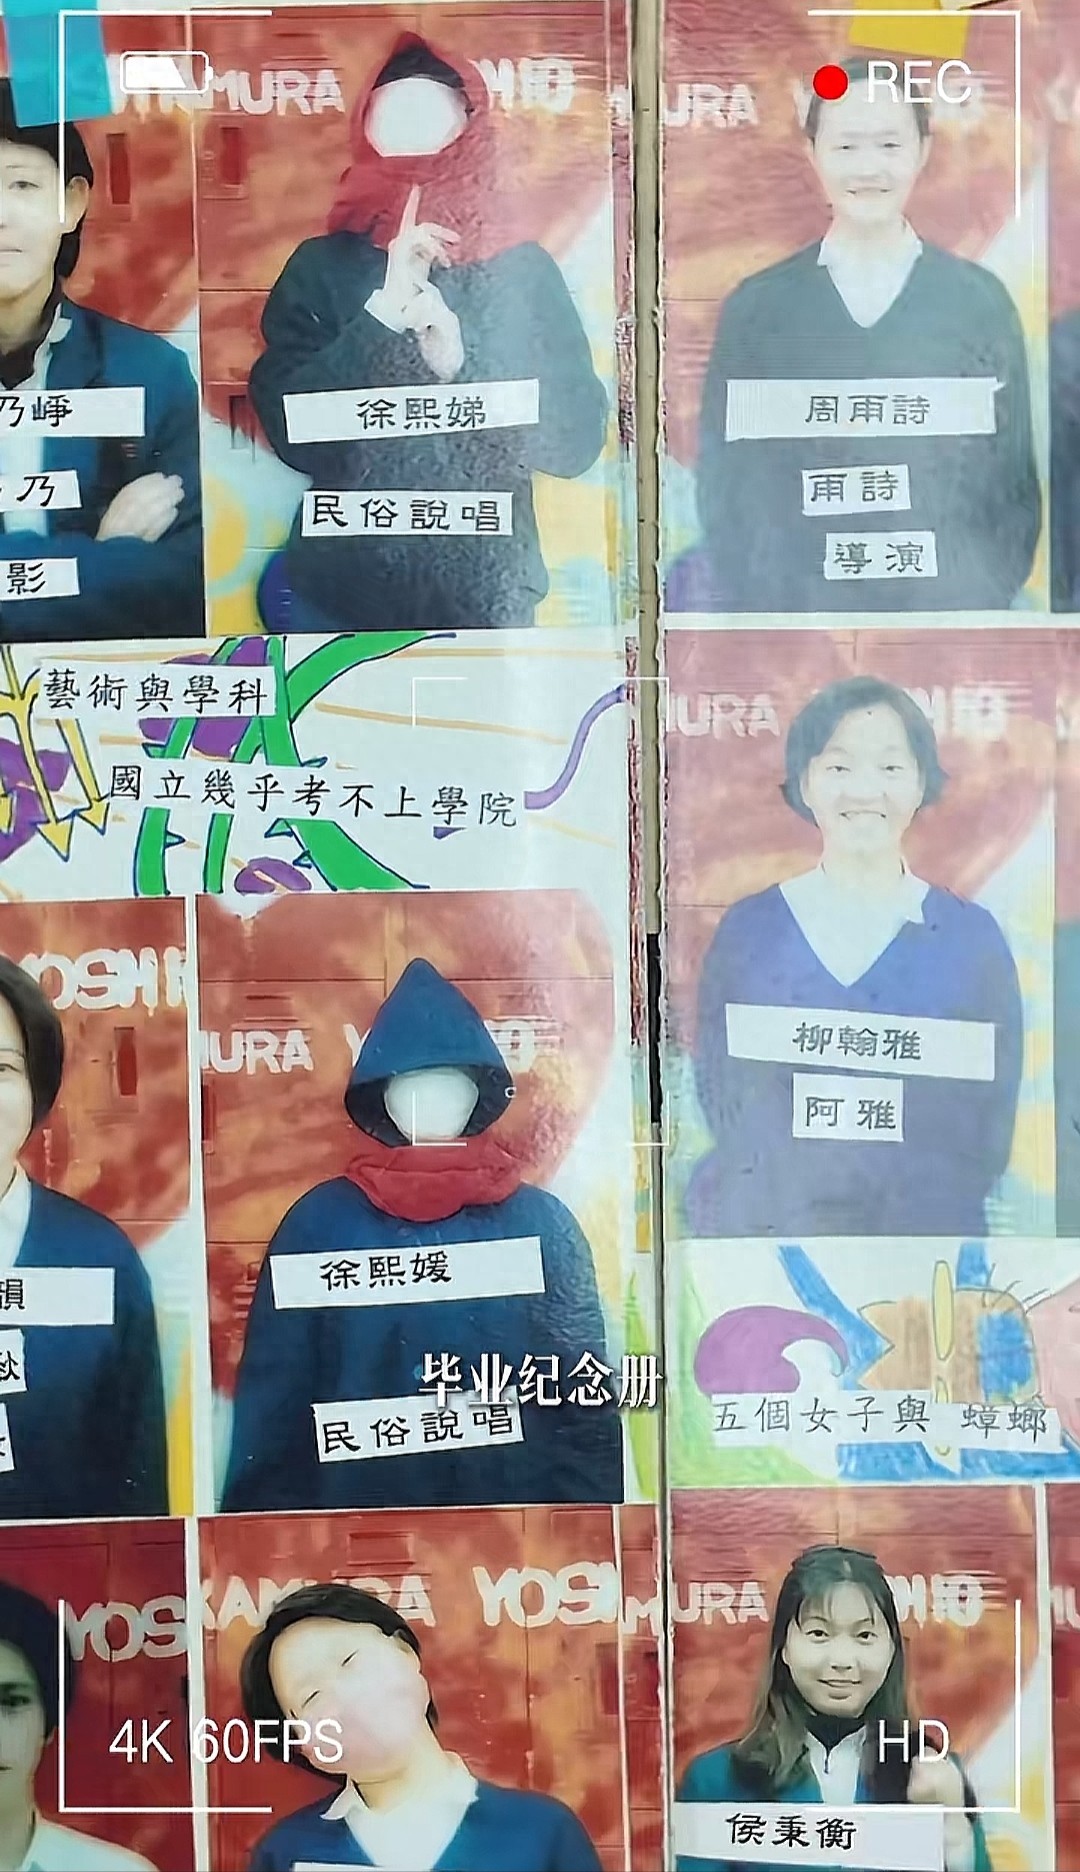 REC
MURA
乃崢
徐熙娣
周雨詩
乃
民俗說唱
雨詩
影
導演
藝術與學科
國立幾乎考不上學院
URA
YOSHI
URA
柳翰雅
阿雅
徐熙媛
韻
秋
毕业纪念册
民俗說唱
五個女子與 蟑螂
YOS
KAMURA
YOSI
MURA
4K 60FPS
HD
侯秉衡